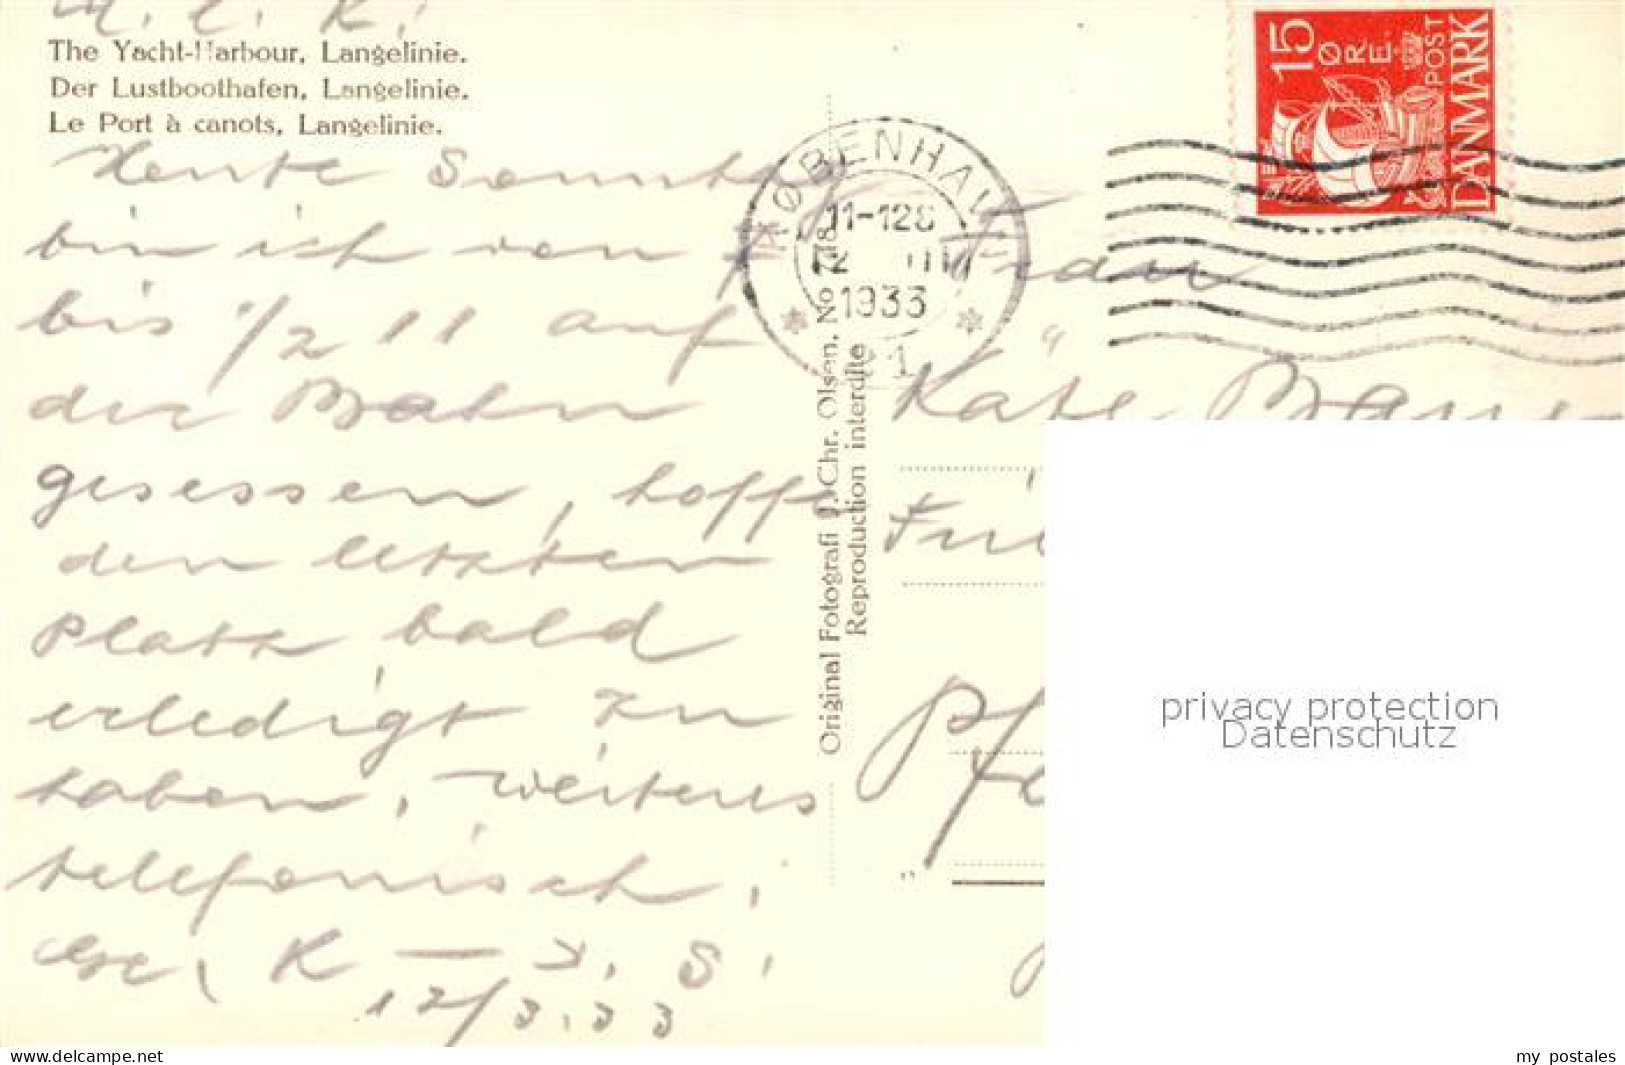 M. l. K.!
The Yacht-Harbour, Langelinie.
Der Lustboothafen, Langelinie.
Le Port à canots, Langelinie.
Heute Sonntag
bin ich von
bis 1/2 11 auf
der Bahn
gesessen, hoffe
den letzten
Platz bald
erledigt zu
haben, weiteres
telefonisch,
K — S.
12/3.33
Original Fotografi J. Chr. Olsen. No
Reproduction interdite
KØBENHAV
11-12
12 III
1933
1
15
ØRE
POST
DANMARK
Frau
Käte
privacy protection
Datenschutz
www.delcampe.net
my postales